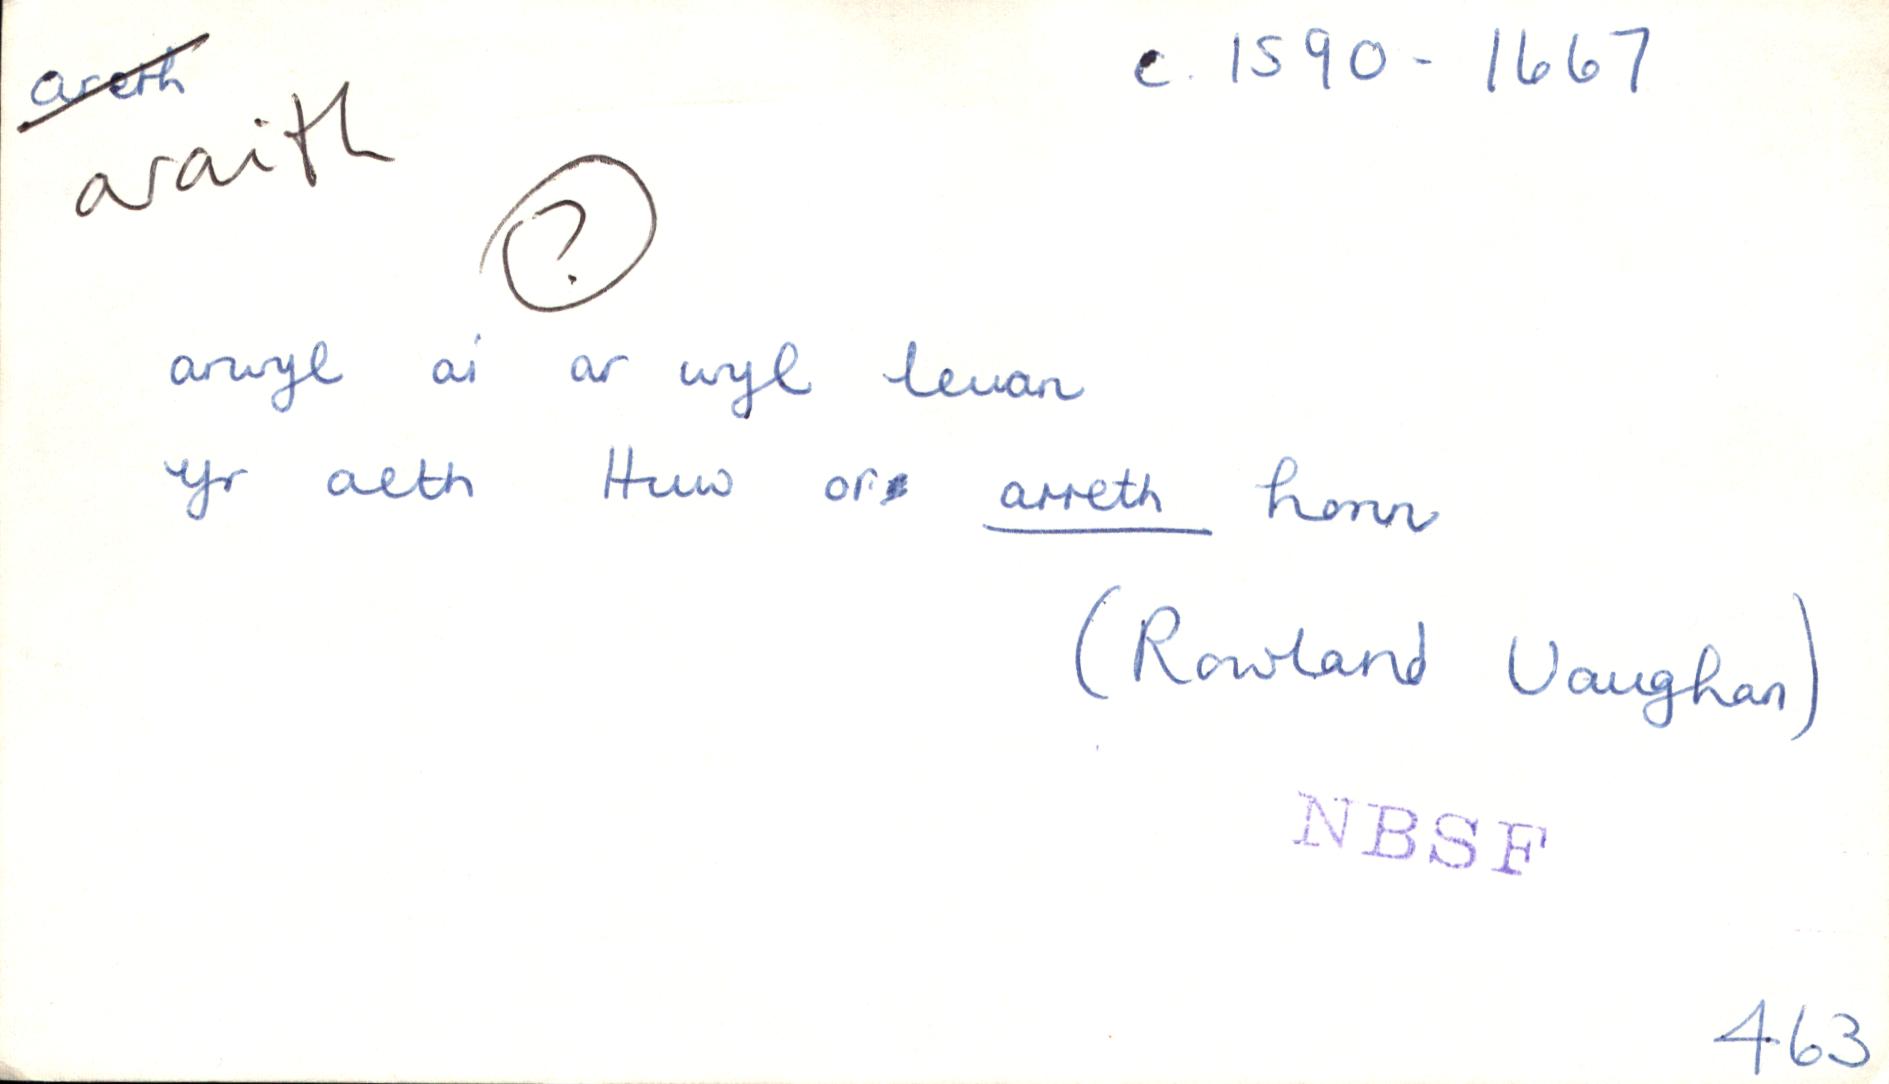 areth
c. 1590 - 1667
araith
?
arwyl ai ar wyl Ieuan
yr aeth Huw or arreth honn
(Rowland Vaughan)
NBSF
463